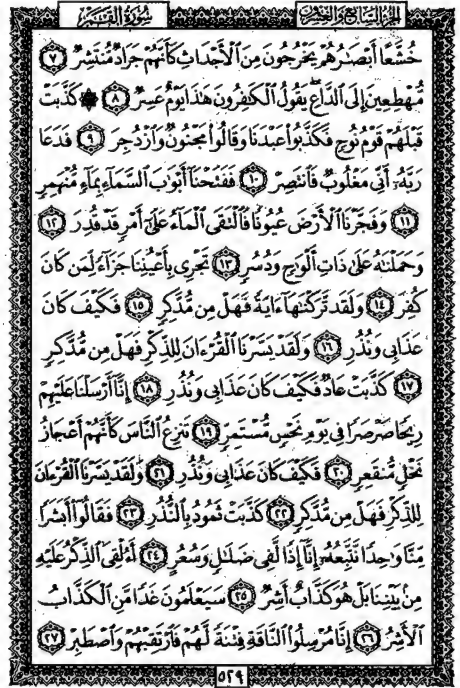 الجزء السابع والعشرون
سورة القمر
خُشَّعًا أَبْصَٰرُهُمْ يَخْرُجُونَ مِنَ ٱلْأَجْدَاثِ كَأَنَّهُمْ جَرَادٌ مُّنتَشِرٌ ٧
مُّهْطِعِينَ إِلَى ٱلدَّاعِ يَقُولُ ٱلْكَٰفِرُونَ هَٰذَا يَوْمٌ عَسِرٌ ٨ ۞ كَذَّبَتْ
قَبْلَهُمْ قَوْمُ نُوحٍ فَكَذَّبُوا۟ عَبْدَنَا وَقَالُوا۟ مَجْنُونٌ وَٱزْدُجِرَ ٩ فَدَعَا
رَبَّهُۥٓ أَنِّى مَغْلُوبٌ فَٱنتَصِرْ ١٠ فَفَتَحْنَآ أَبْوَٰبَ ٱلسَّمَآءِ بِمَآءٍ مُّنْهَمِرٍ
١١ وَفَجَّرْنَا ٱلْأَرْضَ عُيُونًا فَٱلْتَقَى ٱلْمَآءُ عَلَىٰٓ أَمْرٍ قَدْ قُدِرَ ١٢
وَحَمَلْنَٰهُ عَلَىٰ ذَاتِ أَلْوَٰحٍ وَدُسُرٍ ١٣ تَجْرِى بِأَعْيُنِنَا جَزَآءً لِّمَن كَانَ
كُفِرَ ١٤ وَلَقَد تَّرَكْنَٰهَآ ءَايَةً فَهَلْ مِن مُّدَّكِرٍ ١٥ فَكَيْفَ كَانَ
عَذَابِى وَنُذُرِ ١٦ وَلَقَدْ يَسَّرْنَا ٱلْقُرْءَانَ لِلذِّكْرِ فَهَلْ مِن مُّدَّكِرٍ
١٧ كَذَّبَتْ عَادٌ فَكَيْفَ كَانَ عَذَابِى وَنُذُرِ ١٨ إِنَّآ أَرْسَلْنَا عَلَيْهِمْ
رِيحًا صَرْصَرًا فِى يَوْمِ نَحْسٍ مُّسْتَمِرٍّ ١٩ تَنزِعُ ٱلنَّاسَ كَأَنَّهُمْ أَعْجَازُ
نَخْلٍ مُّنقَعِرٍ ٢٠ فَكَيْفَ كَانَ عَذَابِى وَنُذُرِ ٢١ وَلَقَدْ يَسَّرْنَا ٱلْقُرْءَانَ
لِلذِّكْرِ فَهَلْ مِن مُّدَّكِرٍ ٢٢ كَذَّبَتْ ثَمُودُ بِٱلنُّذُرِ ٢٣ فَقَالُوٓا۟ أَبَشَرًا
مِّنَّا وَٰحِدًا نَّتَّبِعُهُۥٓ إِنَّآ إِذًا لَّفِى ضَلَٰلٍ وَسُعُرٍ ٢٤ أَءُلْقِىَ ٱلذِّكْرُ عَلَيْهِ
مِنۢ بَيْنِنَا بَلْ هُوَ كَذَّابٌ أَشِرٌ ٢٥ سَيَعْلَمُونَ غَدًا مَّنِ ٱلْكَذَّابُ
ٱلْأَشِرُ ٢٦ إِنَّا مُرْسِلُوا۟ ٱلنَّاقَةِ فِتْنَةً لَّهُمْ فَٱرْتَقِبْهُمْ وَٱصْطَبِرْ ٢٧
٥٢٩